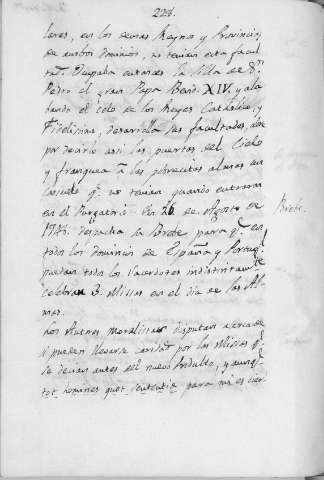 224.
lares, en los demas Reynos y Provincias
de ambos dominios, no tenian esta facul
tad. Ocupaba entonces la silla de Sn.
Pedro el gran Papa Bened. XIV. y ala
bando el celo de los Reyes Catholico, y
Fidelisimo, desarrolla sus facultades, abre
por decirlo asi las puertas del Cielo
y franquea à las pobrecitas almas un
consuelo q. no tenian quando entraron
en el Purgatorio. En 26 de Agosto de
1748. despacha la Brebe para q. en
Brebe.
todos los dominios de España y Portugal
puedan todos los sacerdotes indistintamte.
celebrar 3. Missas en el dia de las Al-
mas.
Los Autores moralistas disputan acerca de
si pueden llevarse caridad por las Missas q.
se decian antes del nuevo Indulto, y aunq.
tot homines quot sententiæ para mi es cier-